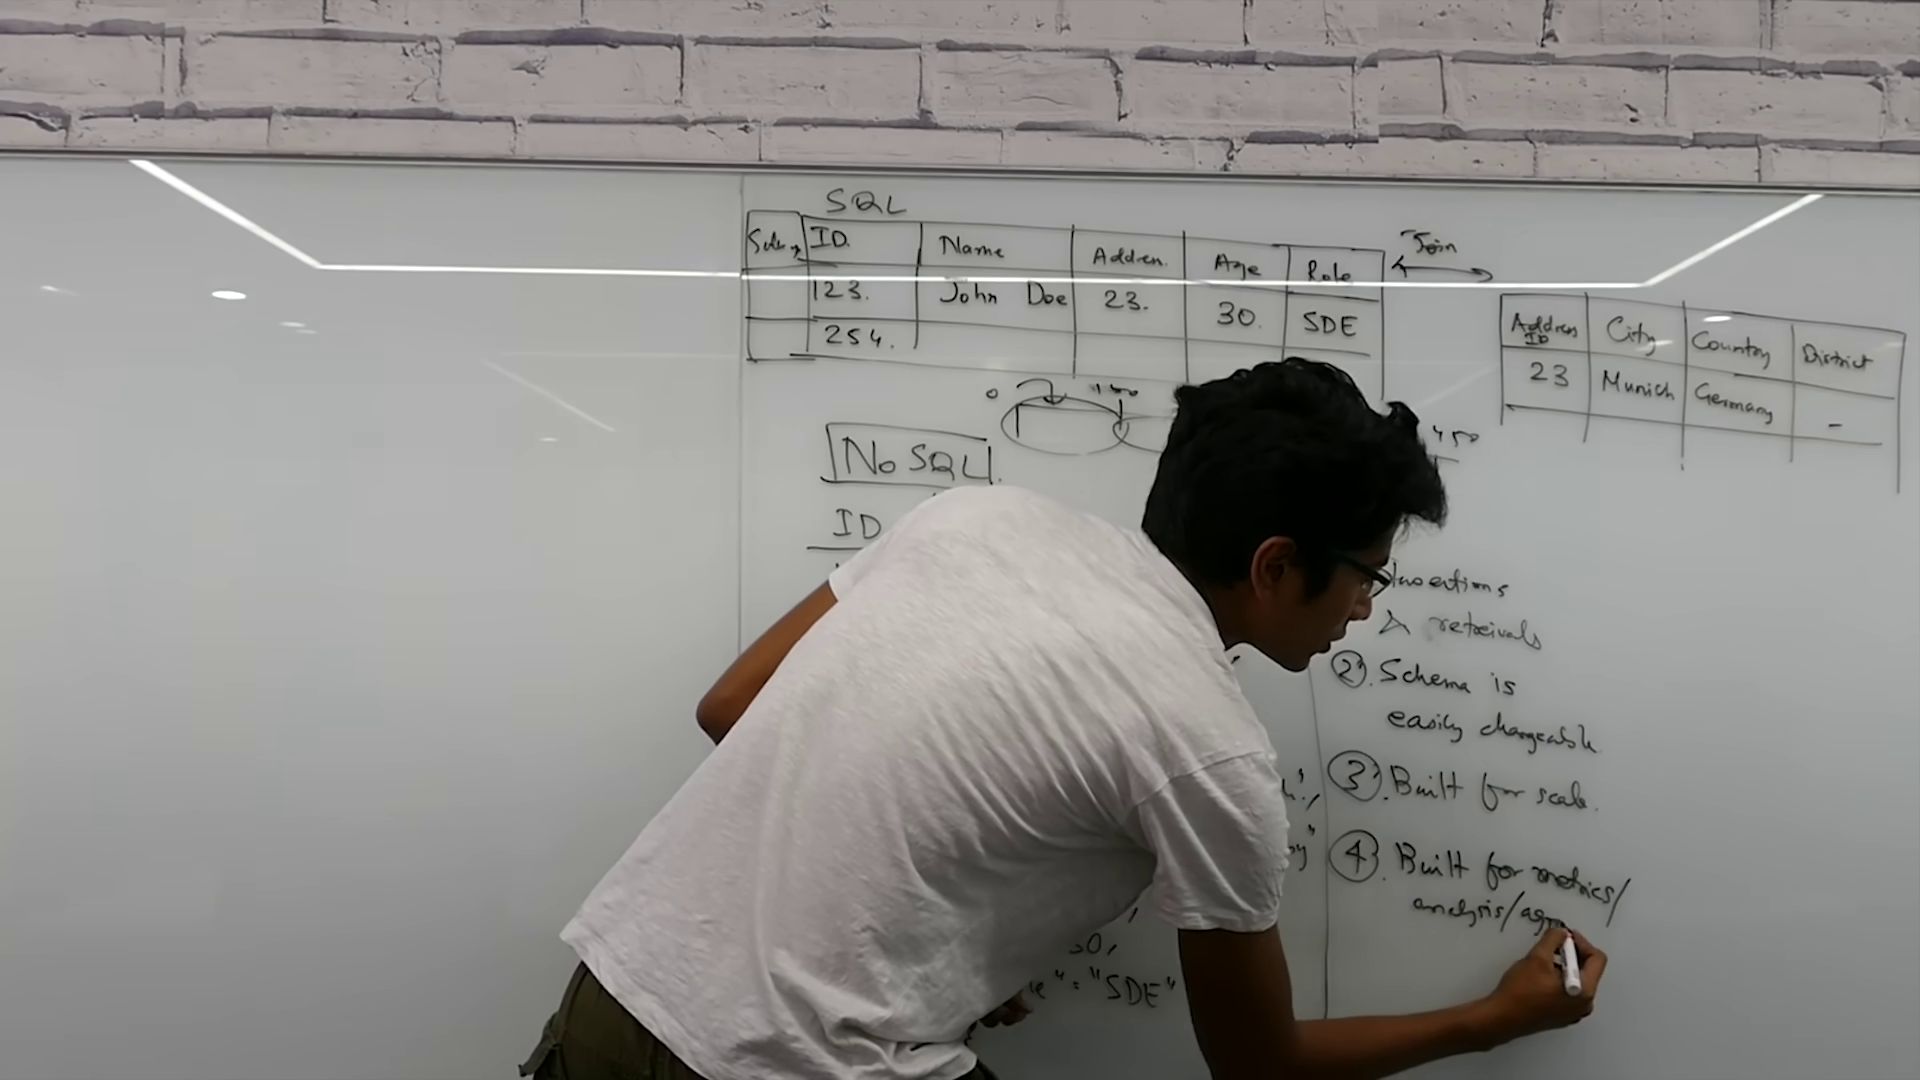 SQL
ID. Name Addren. Age Role
Join
123. John Doe 23. 30. SDE
254.
Addren ID City Country District
23 Munich Germany -
0
NoSQL
ID
& retreivals
2. Schema is
easily changeable
3. Built for scale.
4. Built for metrics/
analysis/aggr
" : "SDE"